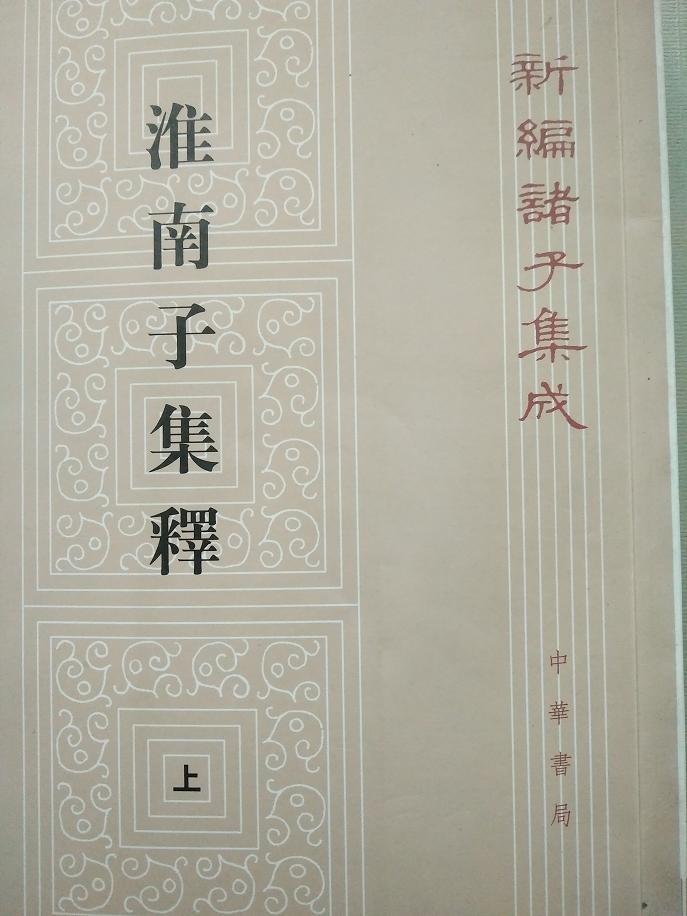 新編諸子集成
中華書局
淮南子集釋
上